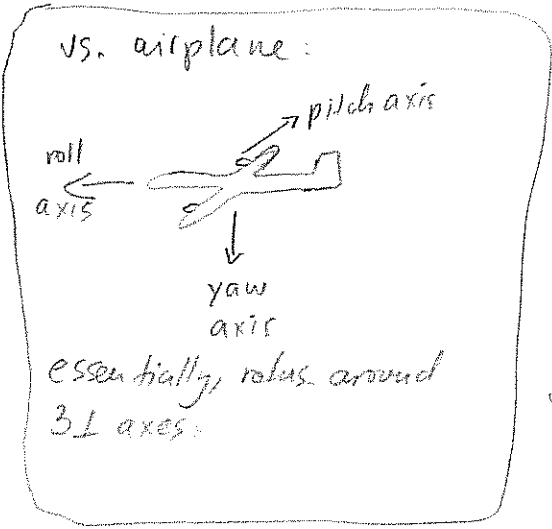 vs. airplane:
pitch axis
roll
axis
yaw
axis
essentially, rotns. around
3 ⊥ axes.